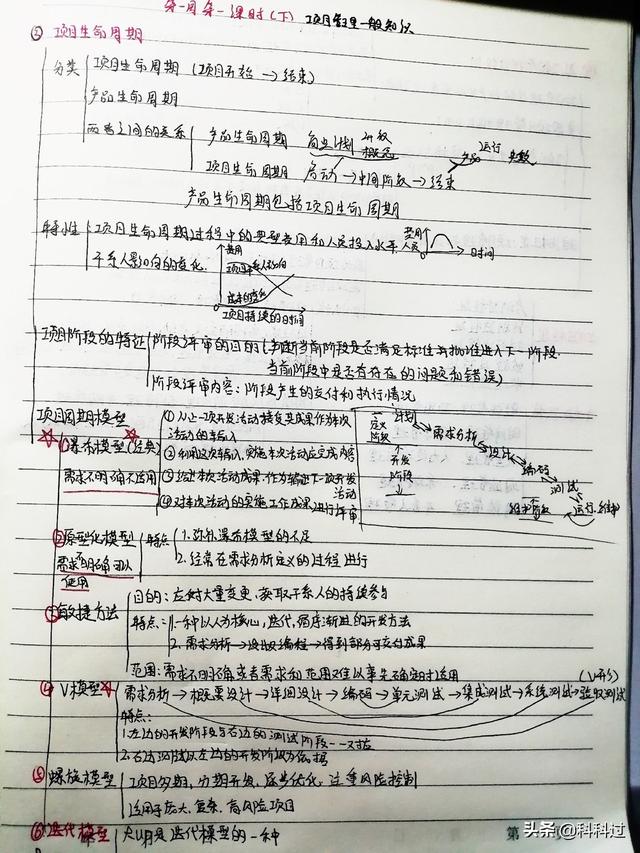 第一周第一课时(下) 项目管理一般知识
② 项目生命周期
分类 项目生命周期 (项目开始 → 结束)
产品生命周期
两者之间的关系 产品生命周期 商业计划 概念 产品 运行 失败
项目生命周期 启动 → 中间阶段 → 结束
产品生命周期包括项目生命周期
特性 1.项目生命周期过程中的典型费用和人员投入水平 费用 人员 0 时间
干系人影响的变化. 费用
项目干系人影响
变更的变化
0 项目持续的时间
项目阶段的特征 阶段评审的目的(判断当前阶段是否满足标准并批准进入下一阶段.
当前阶段中是否有存在的问题和错误)
阶段评审内容: 阶段产生的交付和执行情况
项目周期模型
①瀑布模型(经典)
需求不明确不适用
①从上一项开发活动接受其成果作为本次
活动的输入
②利用这次输入, 实施本次活动应完成内容
③给出本次活动成果, 作为输出于一项开发
活动
④对本次活动的实施工作成果进行评审
定义阶段 计划
需求分析
开发阶段 设计
编码
测试
维护阶段 运行.维护
②原型化模型 特点 1.弥补瀑布模型的不足
需求不明确可以使用 2.经常在需求分析定义的过程进行
③敏捷方法 目的: 应对大量变更, 获取干系人的持续参与
特点: 1.一种以人为核心, 迭代, 循序渐进的开发方法
2.需求分析 → 设计及编程 → 得到部分可交付成果
范围: 需求不明确或者需求和范围难以事先确定时适用
④ V模型 需求分析 → 概要设计 → 详细设计 → 编码 → 单元测试 → 集成测试 → 系统测试 → 验收测试 (V形)
特点:
1.左边的开发阶段与右边的测试阶段一一对应
2.右边测试以左边的开发阶段为依据
⑤ 螺旋模型 项目多期, 分期开发, 逐步优化, 注重风险控制
适用于庞大、复杂、高风险项目
⑥ 迭代模型 RUP是迭代模型的一种
第
头条 @科科过